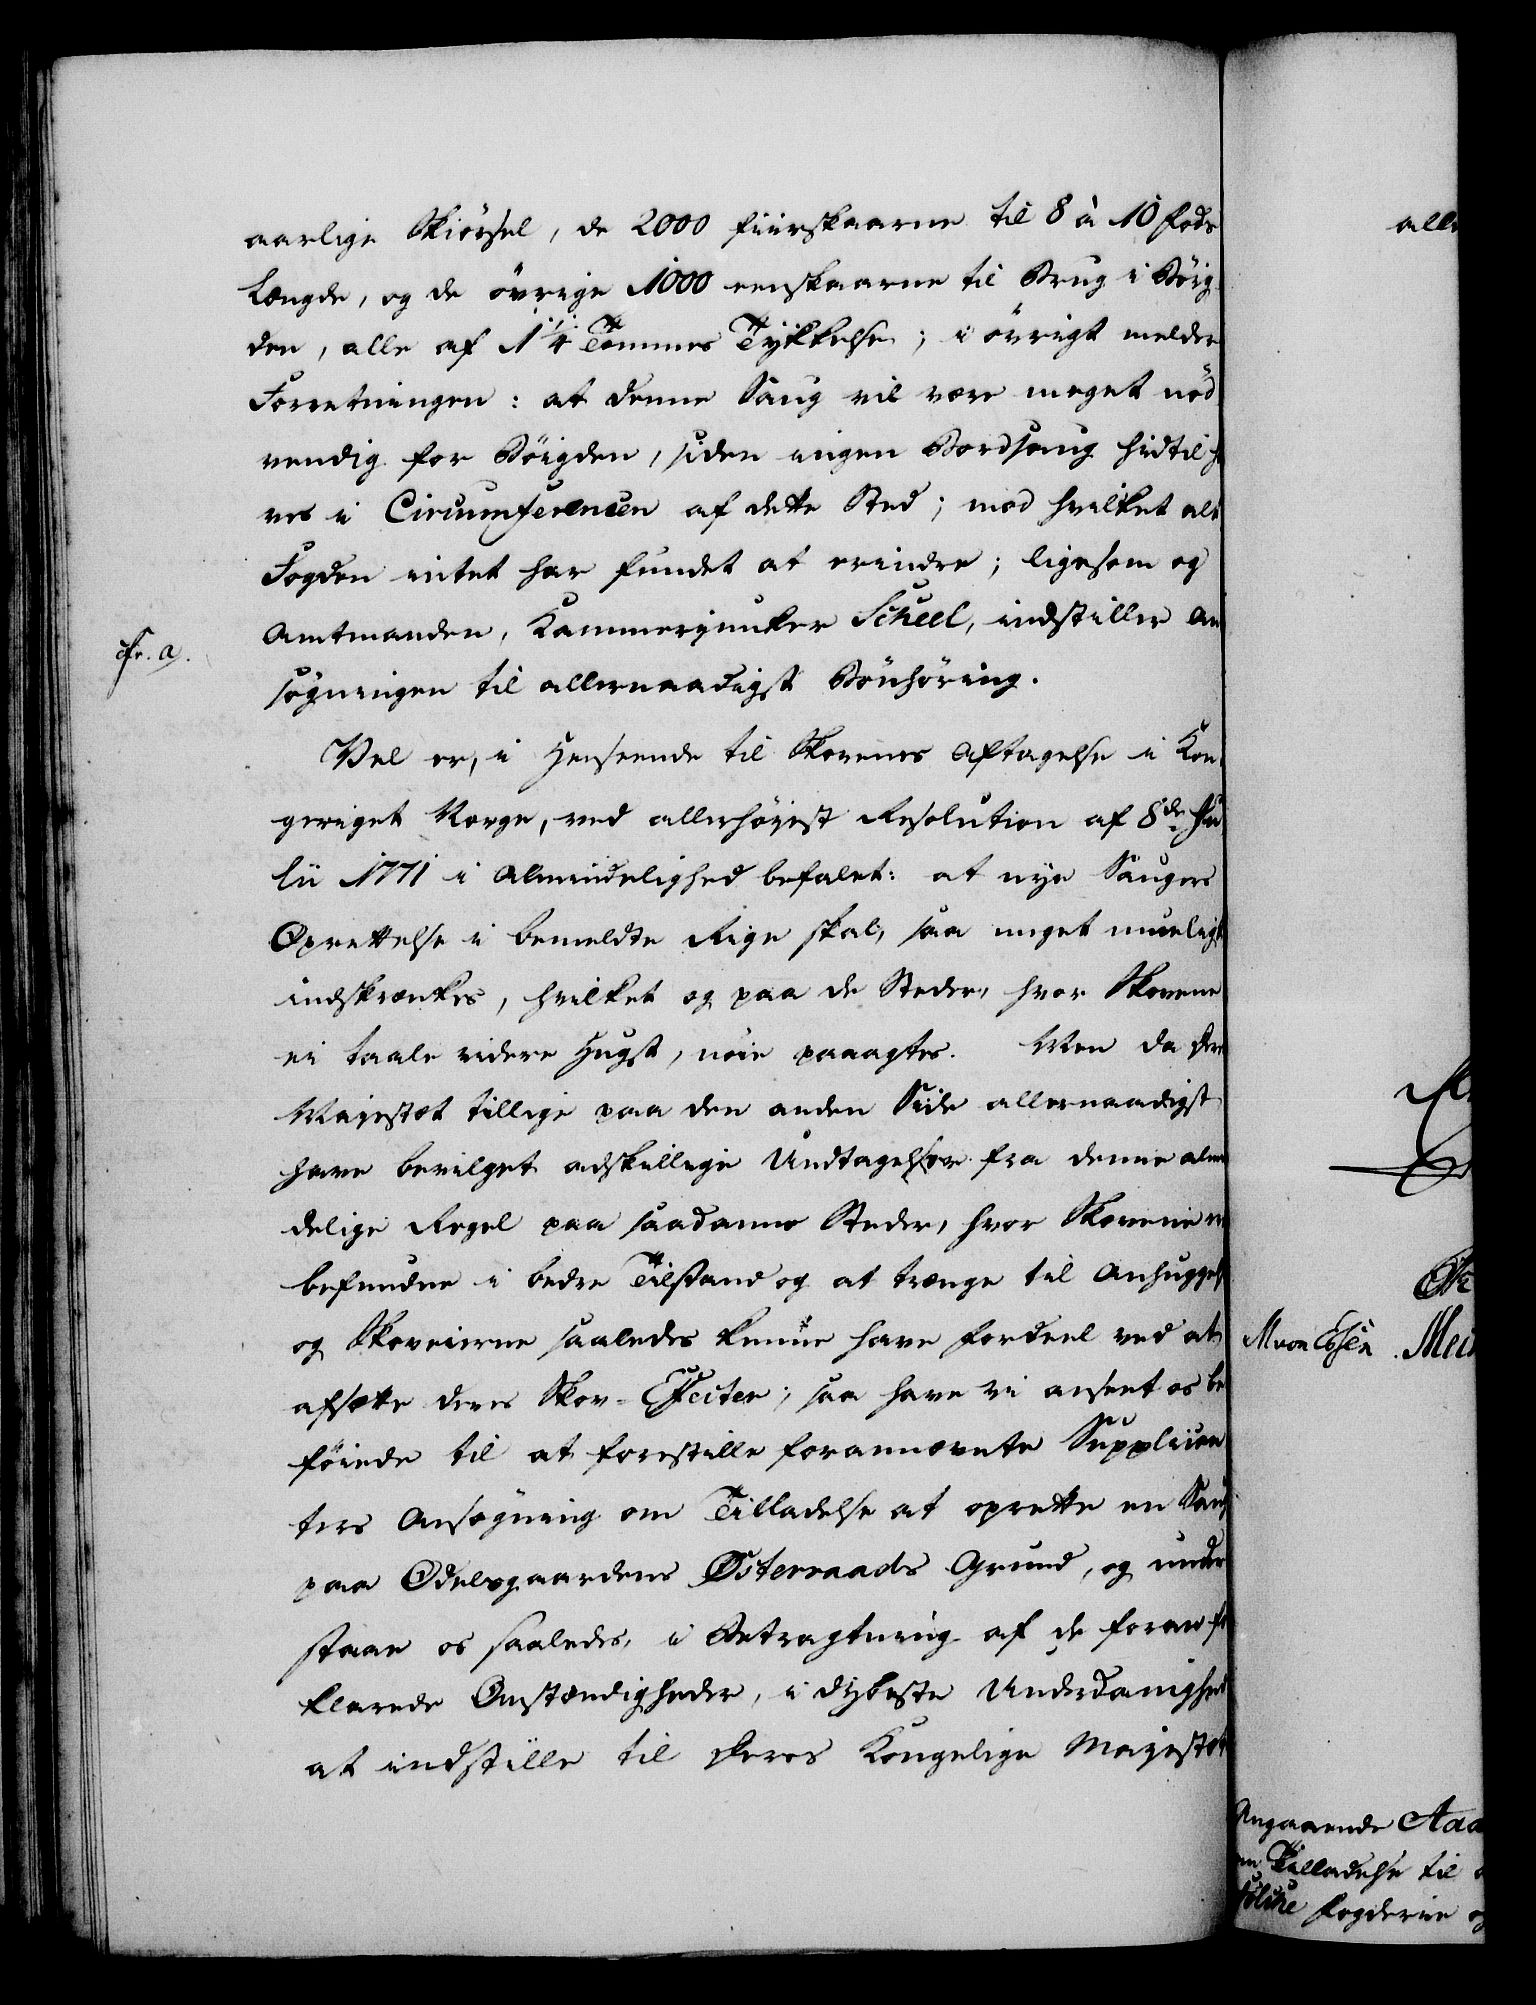 aarlige Skiörsel, de 2000 fiirskaarne til 8 à 10 fods
Længde, og de övrige 1000 eenskaarne til Brug i Böig-
den, alle af 1 1/4 Tommes Tykkelse; i övrigt melder
Forretningen: at denne Saug vil være meget nöd
vendig for Böigden, siden ingen Bordsaug hidtil ha
ves i Circumferencen af dette Sted; mod hvilket alt
Fogden intet har fundet at erindre; ligesom og
Amtmanden, Kammerjunker Scheel, indstiller An
cfr. a.
søgningen til allernaadigst Bönhöring.
Vel er, i Henseende til Skovenes Aftagelse i Kon-
geriget Norge, ved allerhöyest Resolution af 8de Ju
lii 1771 i Almindelighed befalet: at nye Saugers
Oprettelse i bemeldte Rige skal, saa meget mueligt
indskrænkes, hvilket og paa de Steder, hvor Skovene
ei taale videre Hugst, nöie paaagtes. Men da Deres
Majestæt tillige paa den anden Side allernaadigst
have bevilget adskillige Undtagelser fra denne almin
delige Regel paa saadanne Steder, hvor Skovene er
befundne i bedre Tilstand og at trænge til Anhuggelse
og Skoveierne saaledes kunne have Fordeel ved at
afsætte deres Skov-Effecter; saa have vi anseet os be
föiede til at forestille forannævnte Supplican
ters Ansøgning om Tilladelse at oprette en Saug
paa Odelsgaardens Østeraads Grund, og under
staae os saaledes, i Betragtning af de foran for
klarede Omstændigheder, i dybeste Underdanighed
at indstille til Deres Kongelige Majestæt
alle
M von Essen. Mei
Angaaende Aad
om Tilladelse til
Fogderie og